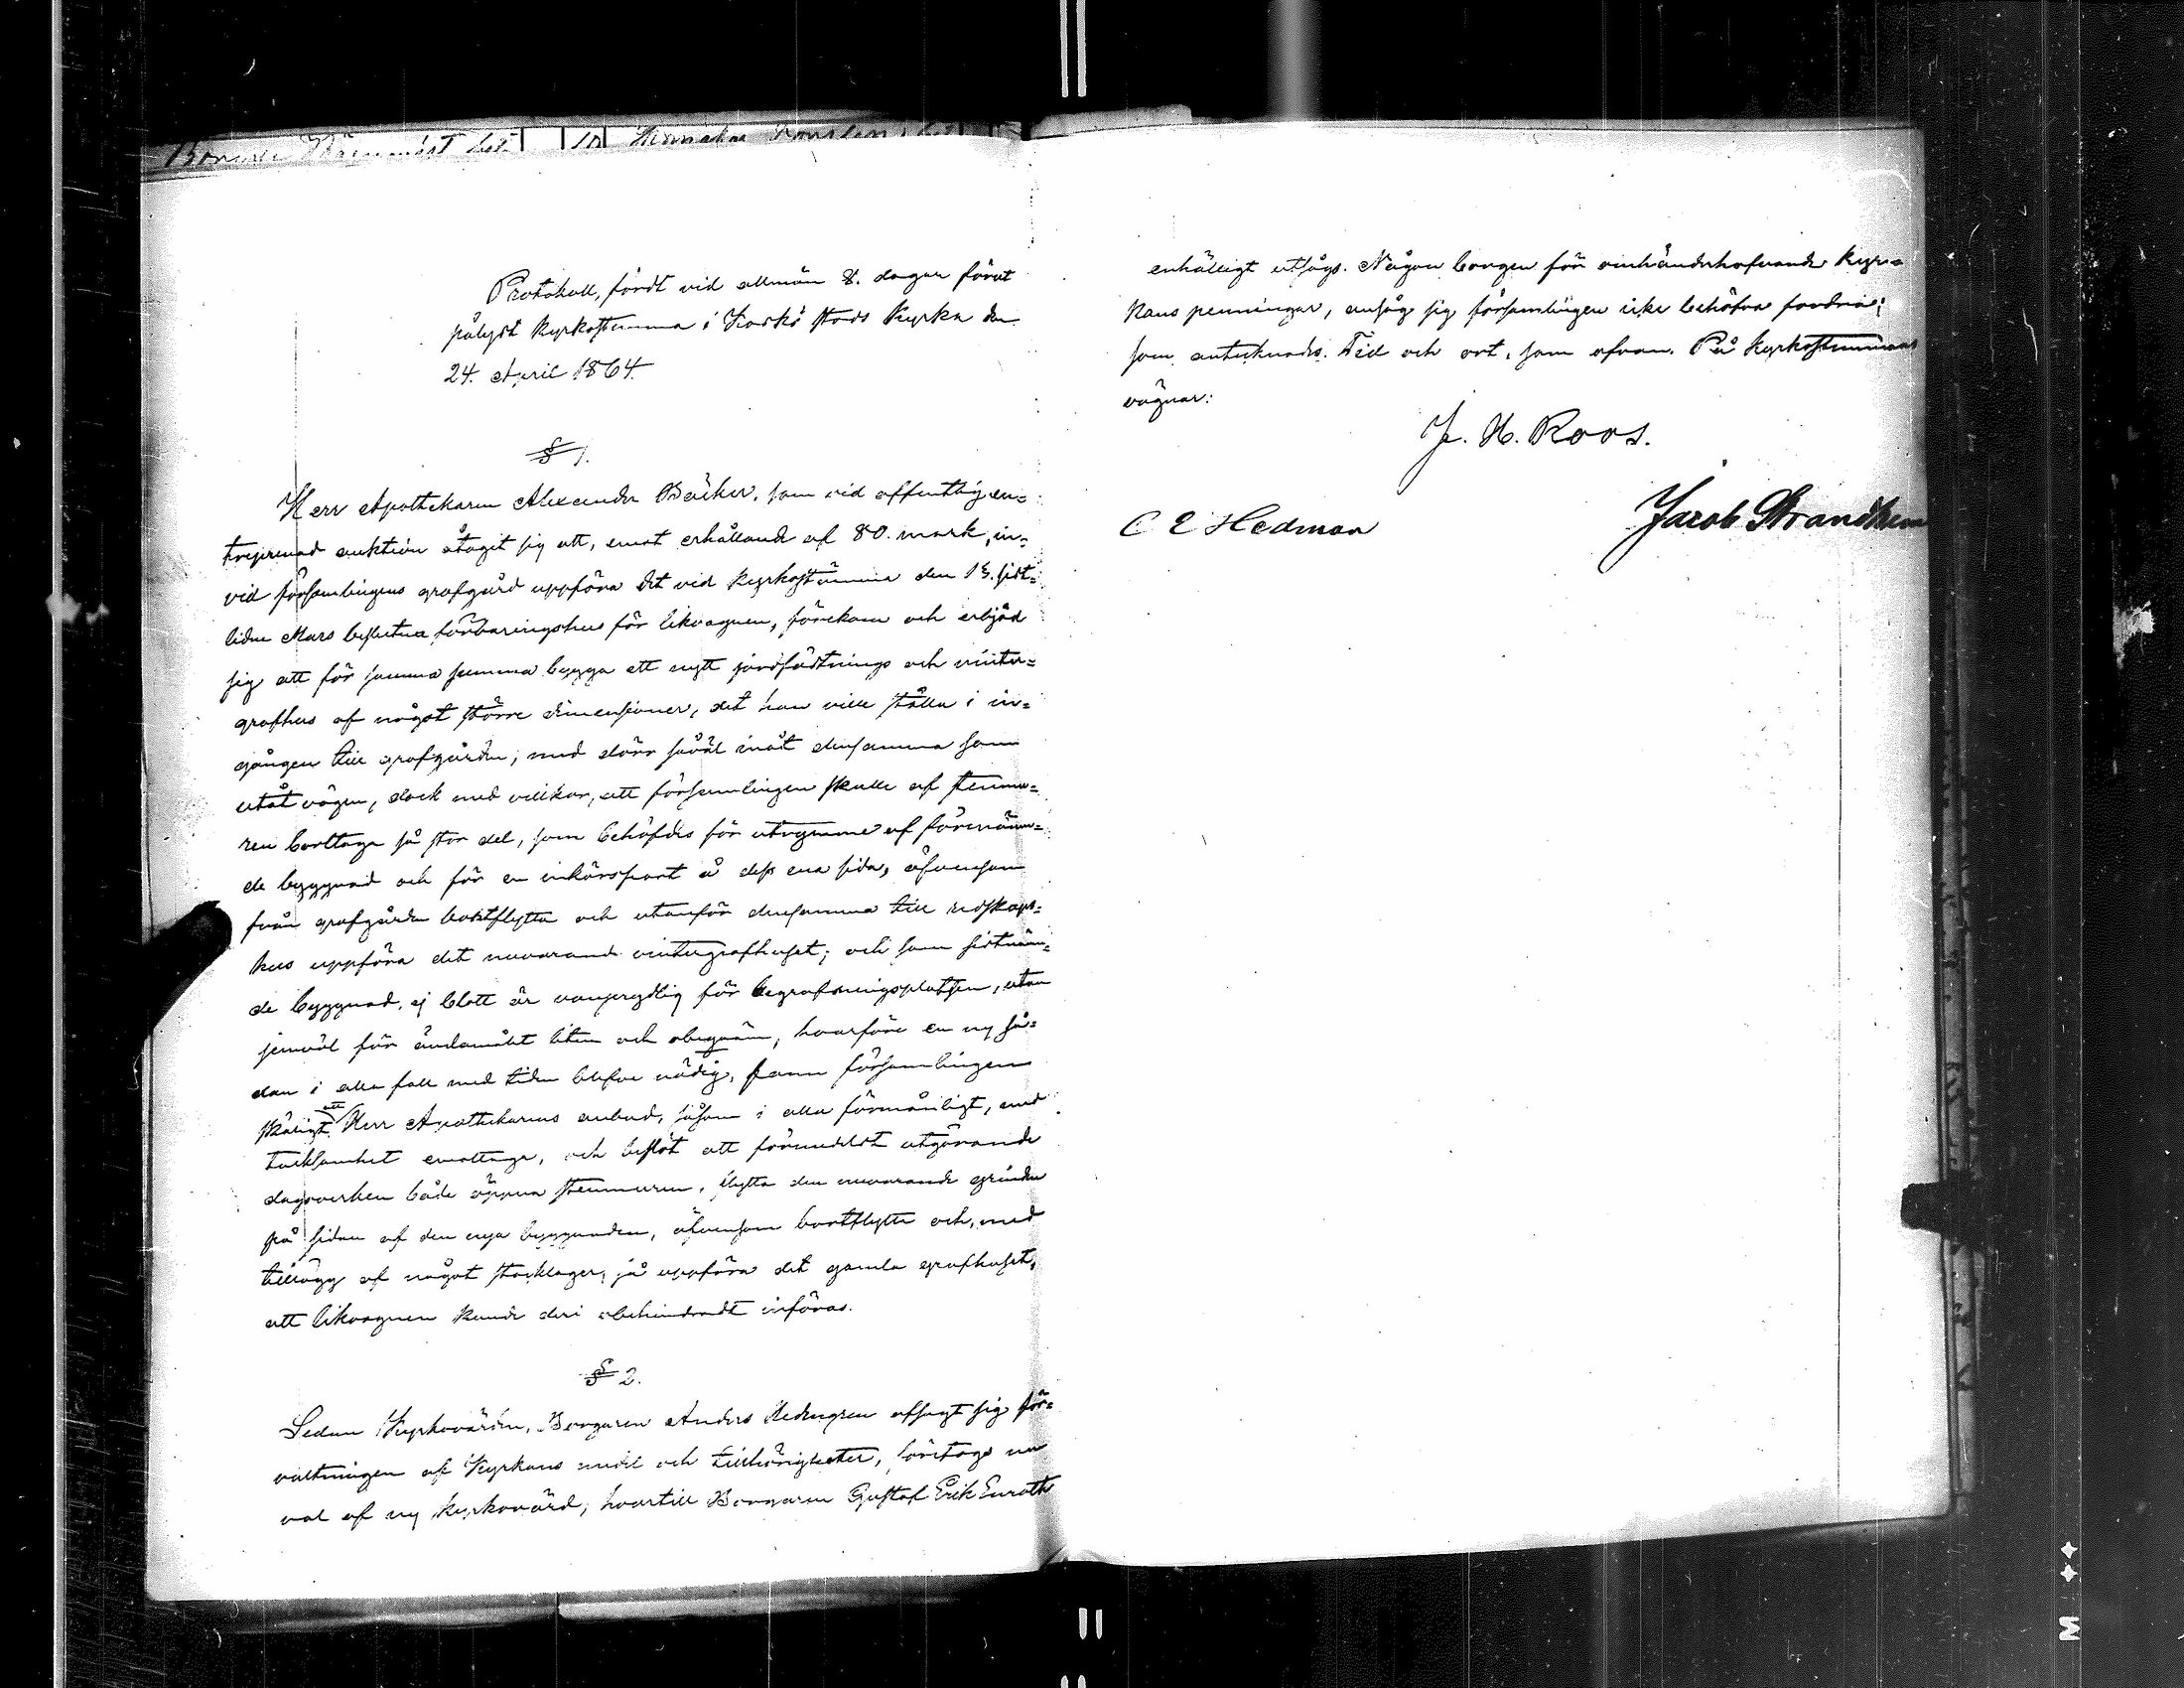 Protokoll, fördt vid allmän 8. dagar förut
pålyst Kyrkostämma i Kaskö stads Kyrka den
24. April 1864.
§ 1.
Herr Apothekaren Alexander Bäcker, som vid offentlig en=
treprenad auktion åtagit sig att, emot erhållande af 80. mark, in=
vid församlingens grafgård uppföra det vid Kyrkostämma den 13. sist=
lidne Mars beslutna förvaringshus för likvagnen, förekom och erbjöd
sig att för samma summa bygga ett nytt jordfästnings och vinter=
grafhus af något större dimensioner, det han ville ställa i in=
gången till grafgården, med dörr såväl inåt densamma som
utåt vägen, dock med villkor, att församlingen skulle af stenmu=
ren borttaga så stor del, som behöfdes för utrymme af förenämn=
de byggnad och för en inkörsport å dess ena sida, äfvensom
från grafgården bortflytta och utanför densamma till redskaps=
hus uppföra det nuvarande vintergrafhuset; och som sistnämn=
de byggnad, ej blott är vanprydlig för begrafningsplatsen, utan
jemväl för ändamålet liten och obeqväm, hvarföre en ny så=
dan i alla fall med tiden blefve nödig, fann församlingen
skäligt att Herr Apothekarens anbud, såsom i alla förmånligt, med
tacksamhet emottaga, och beslöt att förmedelst utgörande
dagsverken både öppna stenmuren, flytta den nuvarande grinden
på sidan af den nya byggnaden, äfvensom bortflytta och, med
tillägg af något stocklager, så uppföra det gamla grafhuset,
att likvagnen kunde deri obehindradt införas.
§ 2.
Sedan Kyrkovärden, Borgaren Anders Hedengren afsagt sig för=
valtningen af Kyrkans medel och tillhörigheter, företogs nu
val af ny kyrkovärd, hvartill Borgaren Gustaf Erik Enroth
enhälligt utsågs. Någon borgen för omhänderhafvande kyr=
kans penningar, ansåg sig församlingen icke behöfva fordra;
som antecknades. Tid och ort, som ofvan. På Kyrkostämmans
vägnar:
J. H. Roos.
C E Hedman
Jacob Strandhem